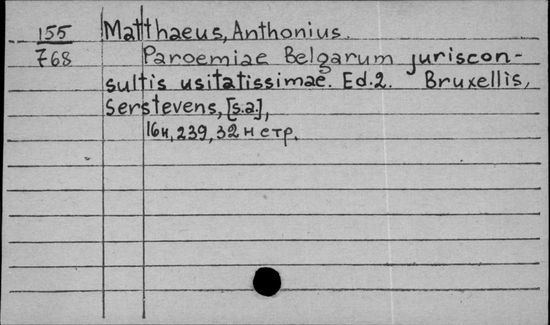 155 Matthaeus, Anthonius.
768 Paroemiae Belgarum juriscon-
sultis usitatissimae. Ed.2. Bruxellis,
Serstevens, [s.a.],
16н, 239, 32 н стр.